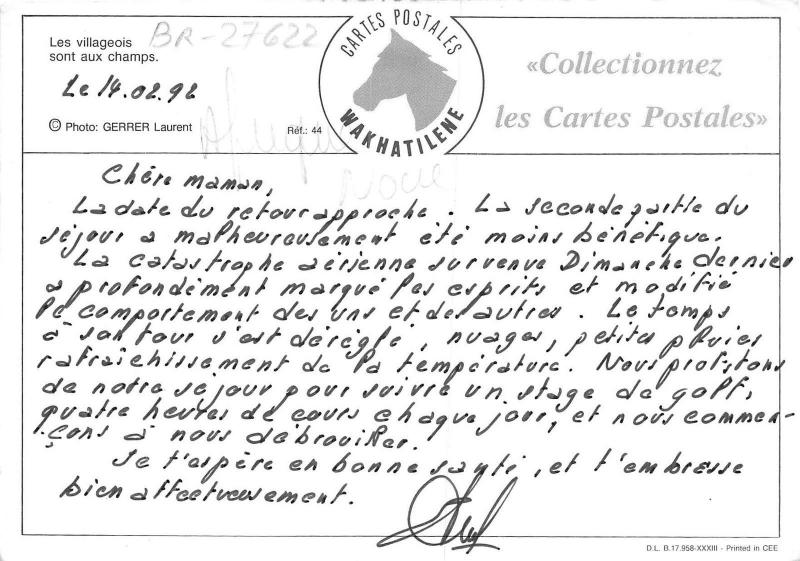 Les villageois
sont aux champs.
BR-27622
Le 14.02.92
© Photo: GERRER Laurent
Réf.: 44
CARTES POSTALES
WAKHATILENE
«Collectionnez
les Cartes Postales»
Afrique
Noire
Chère maman,
La date du retour approche. La seconde partie du
séjour a malheureusement été moins bénéfique.
La catastrophe aérienne survenue Dimanche dernier
a profondément marqué les esprits et modifié
le comportement des uns et des autres. Le temps
à son tour s'est déréglé, nuages, petites pluies
rafraîchissement de la température. Nous profitons
de notre séjour pour suivre un stage de golf,
quatre heures de cours chaque jour, et nous commen-
çons à nous débrouiller.
Je t'espère en bonne santé, et t'embrasse
bien affectueusement.
D.L. B.17.958-XXXIII - Printed in CEE